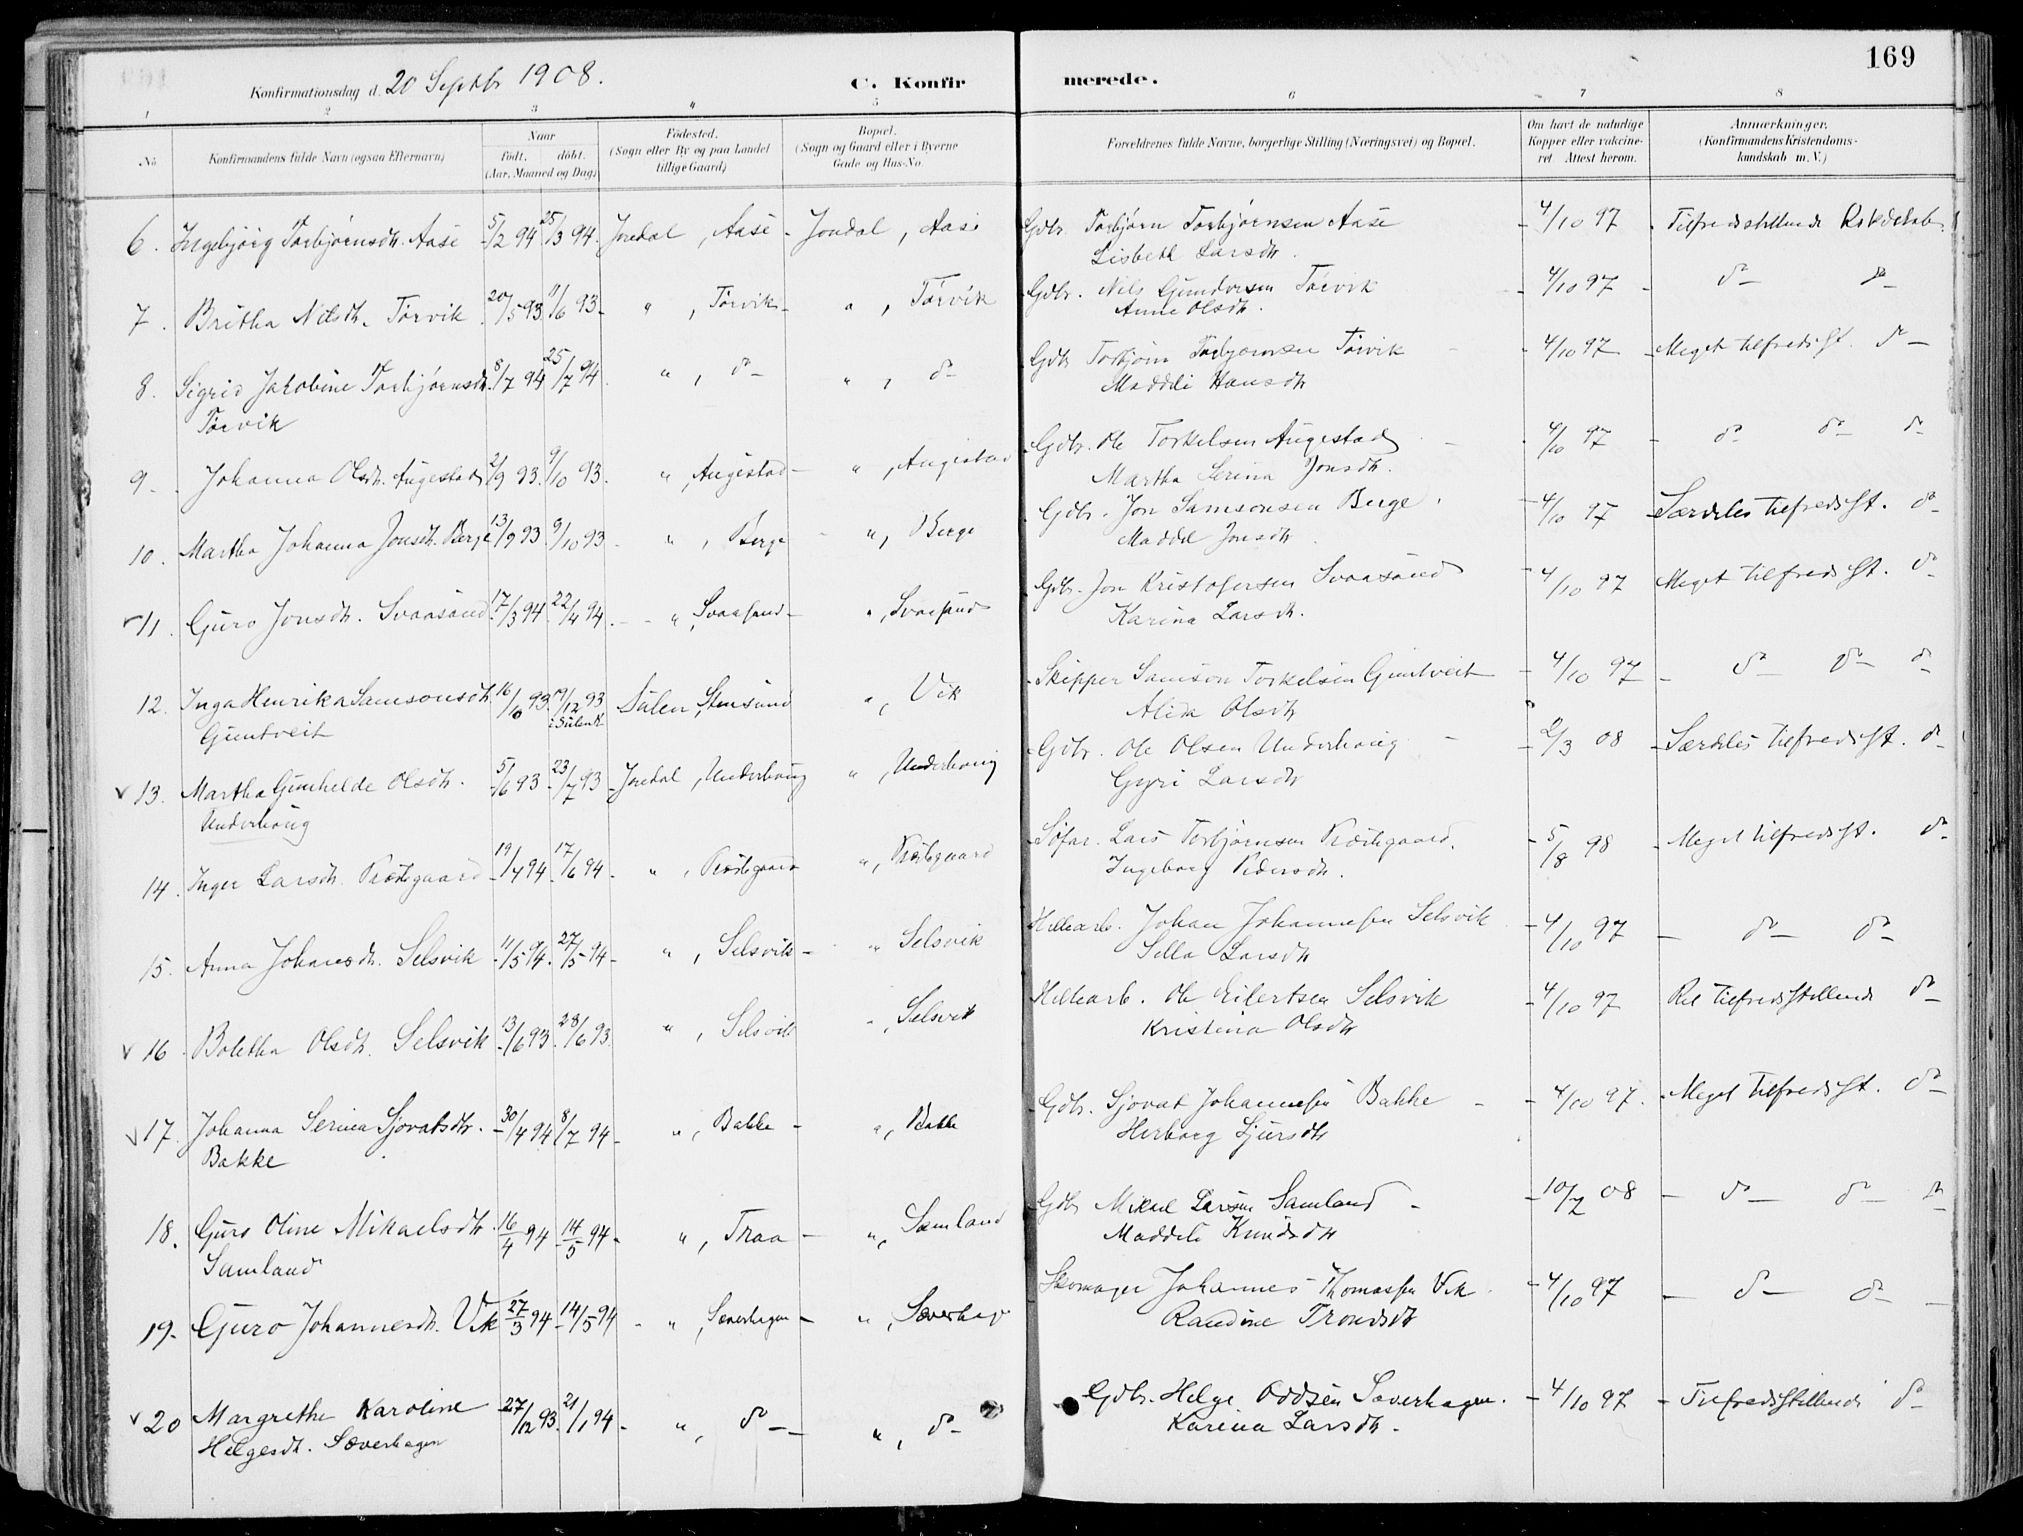 169
Konfirmationsdag d. 20 Septbr 1908.
C. Konfirmerede.
1 2 3 4 5 6 7 8
No
Konfirmandens fulde Navn (ogsaa Efternavn)
Naar
født. døbt.
(Aar, Maaned og Dag)
Fødested.
(Sogn eller By og paa Landet
tillige Gaard)
Bopæl.
(Sogn og Gaard eller i Byerne
Gade og Hus-No.
Forældrenes fulde Navne, borgerlige Stilling (Næringsvei) og Bopæl.
Om havt de naturlige
Kopper eller vakcine-
ret. Attest herom.
Anmærkninger.
(Konfirmandens Kristendoms-
kundskab m. V.)
6. Ingebjörg Torbjørnsdtr. Aase 5/2 94 25/3 94. Jondal, Aase - Jondal, Aase Gdbr. Torbjørn Torbjørnsen Aase - 4/10 97 - Tilfredsstillende
Lisbeth Larsdtr.
7. Britha Nilsdtr. Törvik 20/5 93 11/6 93 - " , Törvik - " , Törvik Gdbr. Nils Gundersen Törvik - 4/10 97 - do - do -
Anne Olsdtr.
8. Sigrid Jakobine Torbjørnsdtr. 8/7 94 25/7 94. " , do - " , do - Gdbr Torbjørn Torbjørnsen Törvik - 4/10 97 - Meget tilfredsst. do -
Törvik Maddeli Hansdtr
9. Johanna Olsdtr. Augestad 2/9 93. 9/10 93. " , Augestad - " , Augestad Gdbr. Ole Torkelsen Augestad - 4/10 97 - do do - do -
Martha Serina Jonsdtr.
10. Martha Johanna Jonsdtr. Berge 13/9 93 9/10 93 - " , Berge - " , Berge Gdbr. Jon Samsonsen Berge - 4/10 97 - Særdeles tilfredsst. do -
Maddel Jonsdtr
11. Guro Jonsdtr. Svaasand 17/3 94. 22/4 94. - " , Svaasand - " , Svaasand Gdbr. Jon Kristofersen Svaasand - 4/10 97 Meget tilfredsst. do -
Karina Larsdtr.
12. Inga Henrika Samsonsdtr. 16/10 93 19/12 93 Sulen, Stensund " , Vik Skipper Samson Torkelsen Guntveit - 4/10 97 - do - do - do -
Guntveit i Sulen K Alida Olsdtr
13. Martha Gunhelde Olsdtr. 5/6 93 23/7 93 - Jondal, Underhaug " , Underhaug Gdbr. Ole Olsen Underhaug - 2/3 08 - Særdeles tilfredsst. do -
Underhaug Gyri Larsdtr
14. Inger Larsdtr. Prestegaard - 19/4 94 17/6 94 - " , Prestegaard " , Prestegaard Lars Torbjørnsen Prestegaard. - 5/8 98 - Meget tilfredsst. do -
Ingeborg Pedersdtr.
15. Anna Johansdtr. Selsvik 11/5 94. 27/5 94 - " , Selsvik - " Selsvik Johan Johannessen Selsvik - 4/10 97 - do - do -
Sella Larsdtr
16. Boletha Olsdtr. Selsvik 13/6 93. 28/6 93. " , Selsvik " , Selsvik Ole Eilertsen Selsvik - 4/10 97 Tilfredsstillende do -
Kristina Olsdtr
17. Johanna Serina Sjovatsdtr. - 30/4 94 8/7 94 - " , Bakke - " , Bakke Gdbr. Sjovat Johannessen Bakke - 4/10 97. - Meget Tilfredsst. do -
Bakke Herborg Sjursdtr
18. Guro Oline Mikaelsdtr. 16/4 94 14/5 94 - " , Traa - " , Samland Gdbr Mikael Larsen Samland - 10/2 08 - do - do - do -
Samland Maddeli Knudsdtr
19. Guro Johannesdtr. Vik 27/3 94 14/5 94 - " , Sæverhagen - " , Sæverhag Skomager Johannes Thomassen Vik - 4/10 97 - do - do -
Randine Trondsdtr
20 Margrethe Karoline 27/12 93. 21/1 94 - " , do - " , do - Gdbr. Helge Oddsen Saverhagen. - 4/10 97 - Tilfredsstillende do -
Helgesdtr. Sæverhagen Karina Larsdtr.